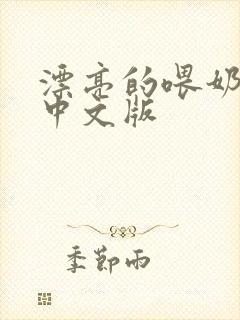 漂亮的喂奶
中文版
季节雨